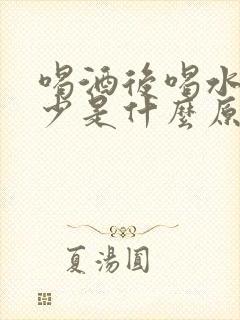 喝酒後喝水
少是什麼原
夏湯圓